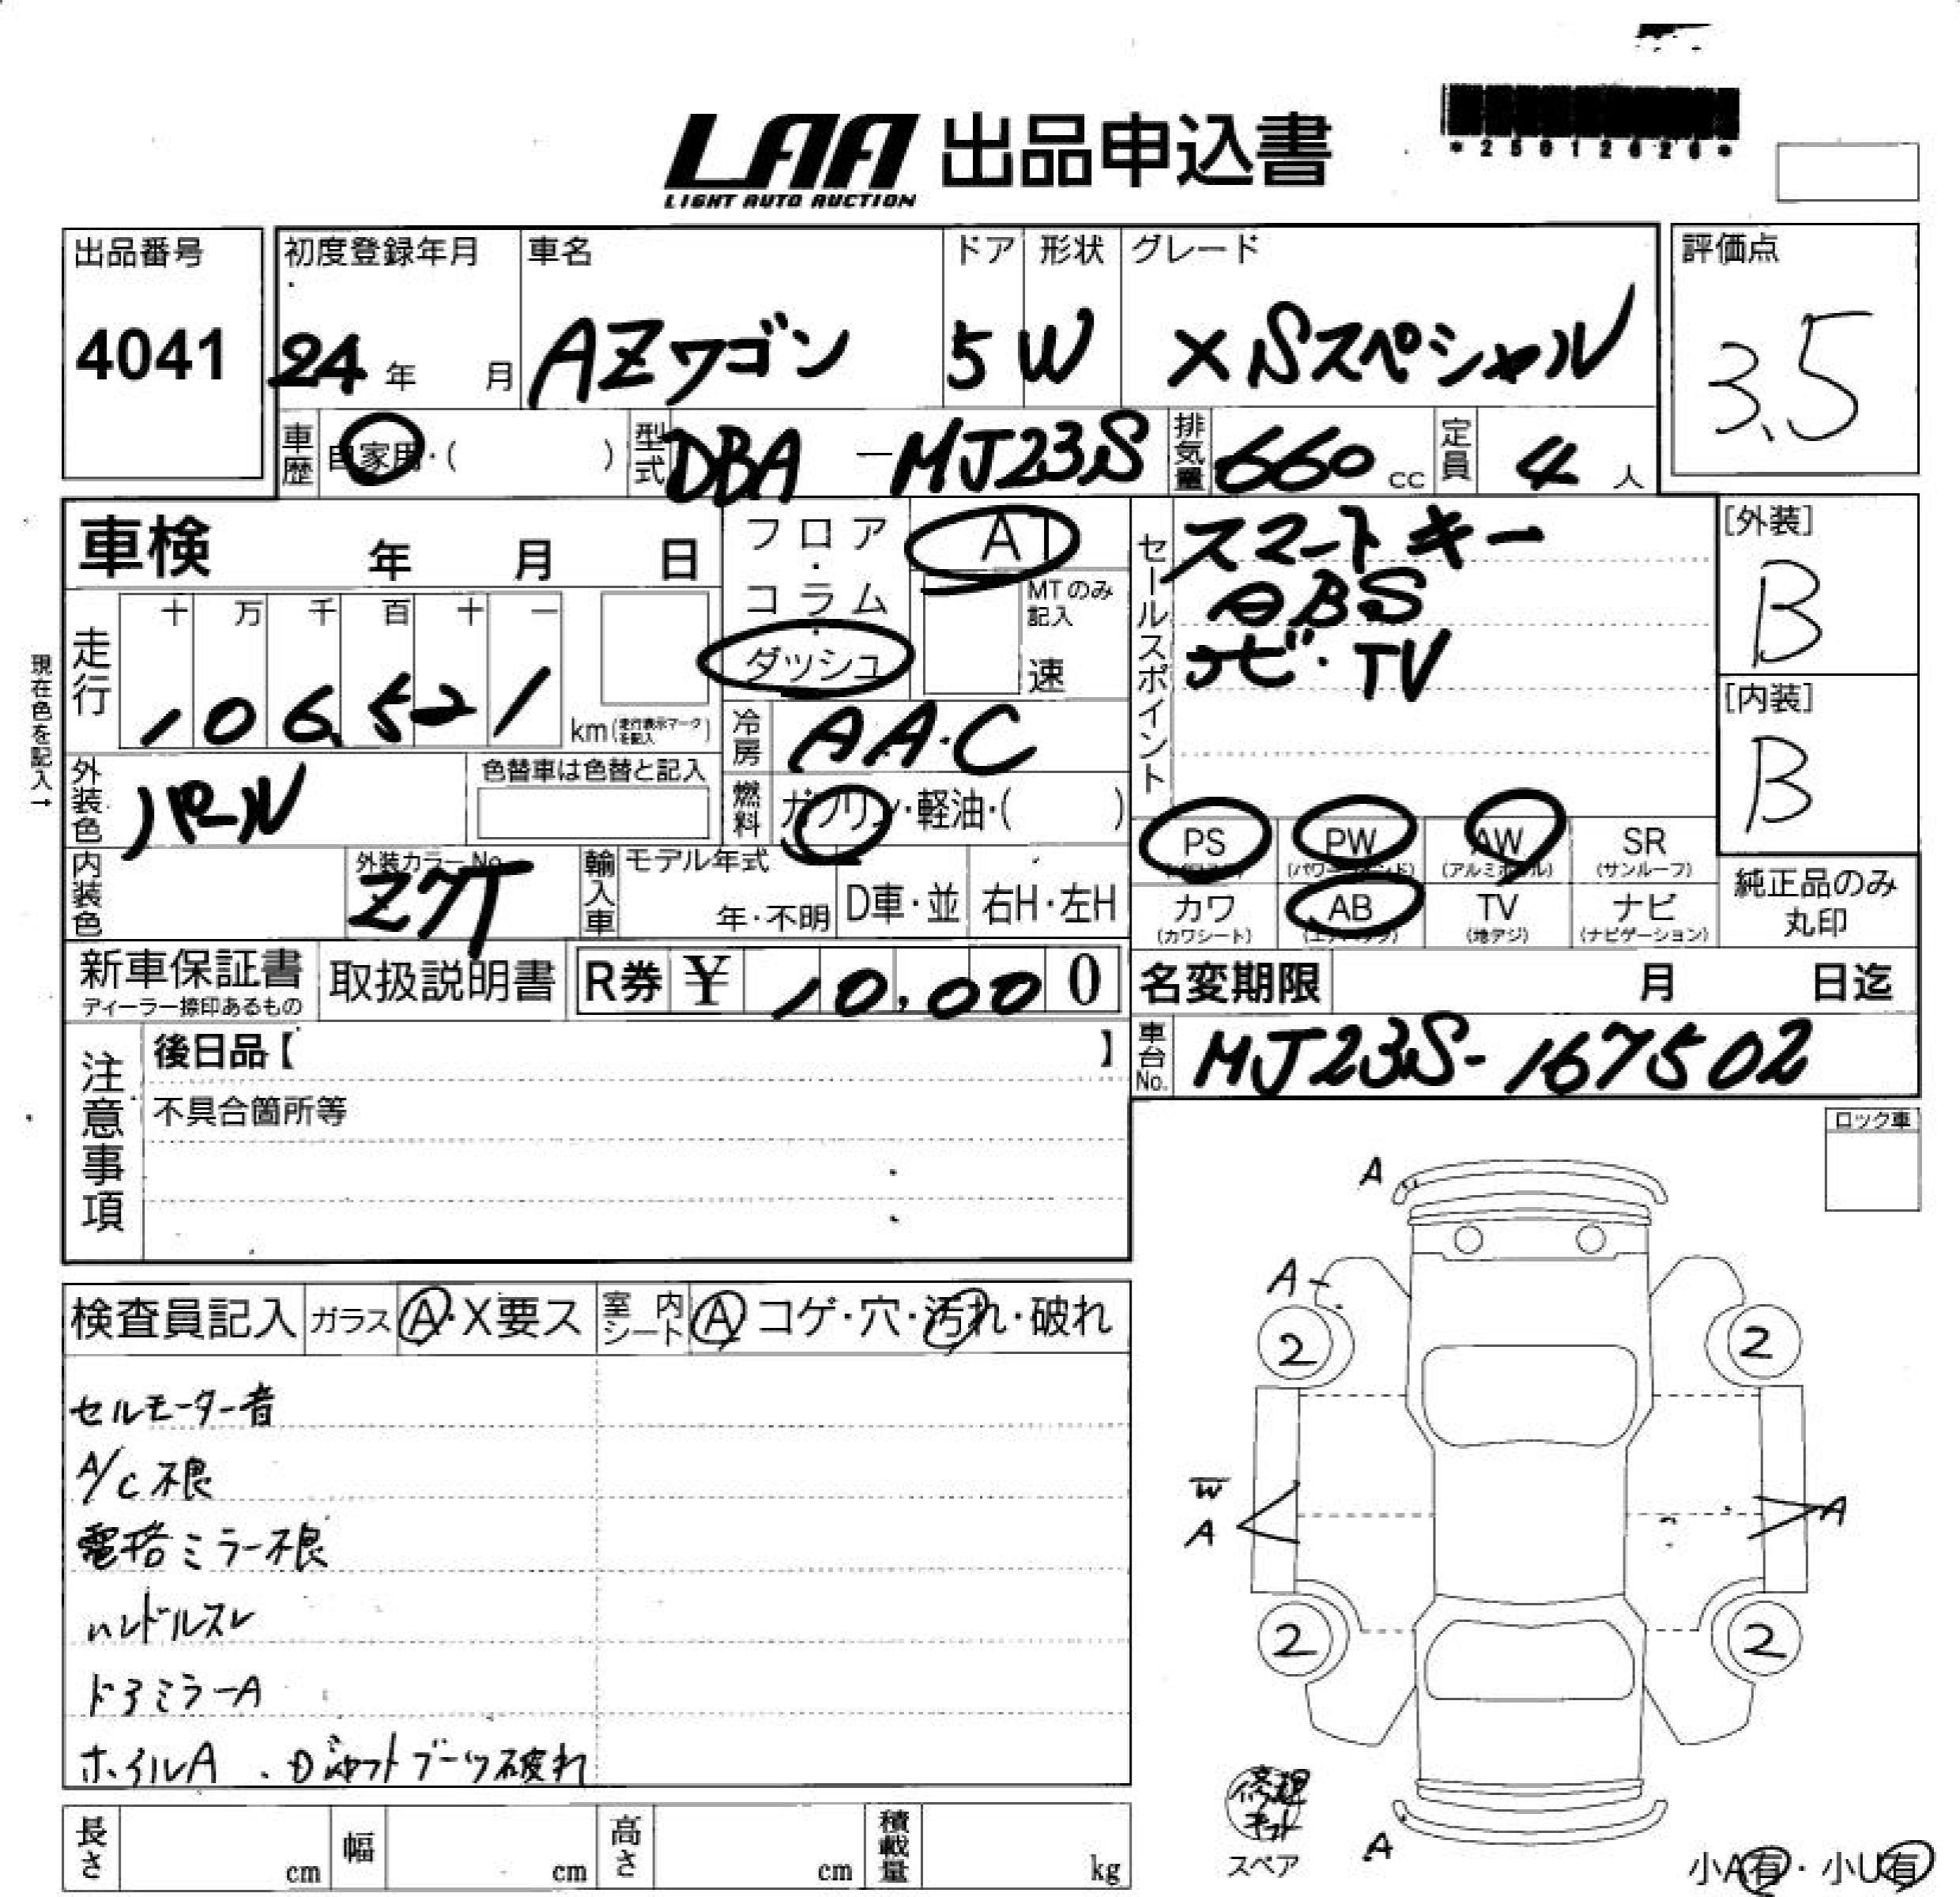 LAA 出品申込書
LIGHT AUTO AUCTION
*25012626*
出品番号
4041
初度登録年月
24年 月
車名
AZワゴン
ドア
5
形状
W
グレード
XSスペシャル
評価点
3.5
車歴 自家用・( )
型式 DBA-MJ23S
排気量 660cc
定員 4人
車検 年 月 日
フロア・コラム・ダッシュ
AT
MTのみ記入
速
セールスポイント
スマートキー
ABS
ナビ・TV
[外装]
B
[内装]
B
現在色を記入→
走行
十 万 千 百 十 一
106,521
km(走行表示マークを記入)
冷房 AAC
外装色 パール
色替車は色替と記入
燃料 ガソリン・軽油・( )
PS
PW
AW (アルミホイール)
SR (サンルーフ)
カワ (カワシート)
AB
TV (地デジ)
ナビ (ナビゲーション)
純正品のみ丸印
内装色
外装カラーNo.
Z7T
輸入車
モデル年式
年・不明
D車・並
右H・左H
新車保証書
ディーラー捺印あるもの
取扱説明書
R券 ¥ 10,000
名変期限 月 日迄
車台No. MJ23S-167502
注意事項
後日品【 】
不具合箇所等
ロック車
検査員記入
ガラス A・X要ス
室内シート A コゲ・穴・汚れ・破れ
セルモーター音
A/C不良
電格ミラー不良
ハンドルスレ
ドアミラーA
ホイルA . Dシャフトブーツ破れ
A
A
2
2
W
A
A
2
2
修理キット
スペア
A
小A有・小U有
長さ cm
幅 cm
高さ cm
積載量 kg